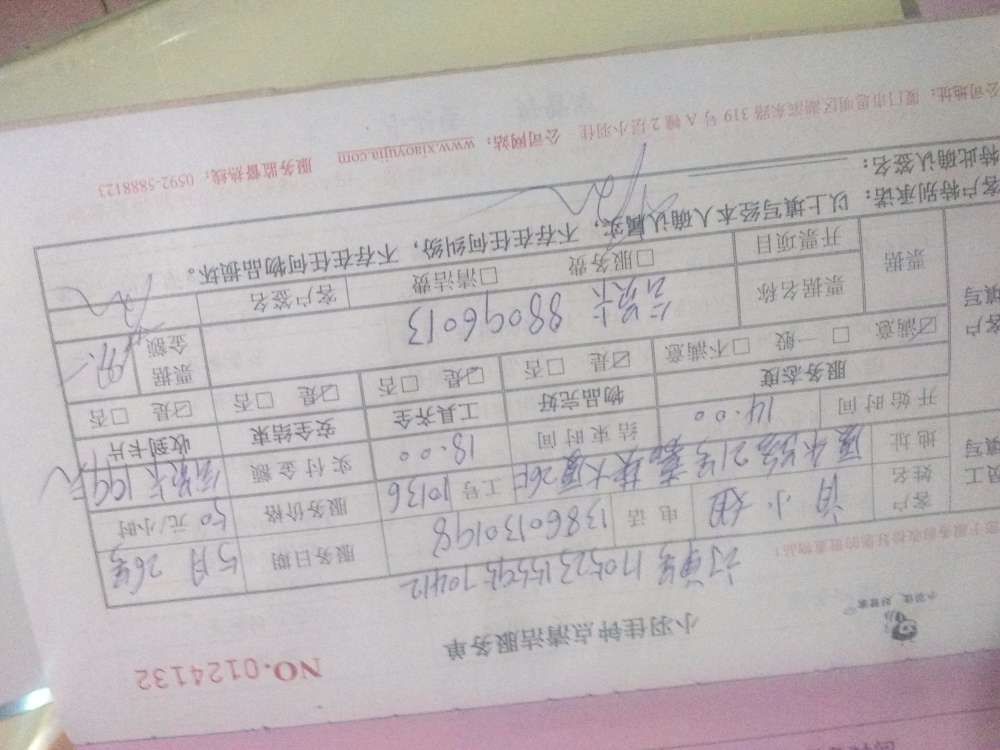 NO.0124132
小羽佳 好管家
小羽佳钟点清洁服务单
订单号 170523155957 70412
员工填写
客户姓名 许小姐 电话 13860130198 服务日期 5月26号
地址 21号嘉 大厦26F 工号 10136 服务价格 50元/小时
开始时间 14.00 结束时间 18.00 实付金额 199
客户填写
服务态度 物品完好 工具齐全 安全结束 收到卡片
☑满意 □一般 □不满意 ☑是 □否 ☑是 □否 ☑是 □否 ☑是 □否
票据 票据名称 88096013 票据金额
开票项目 □服务费 □清洁费 客户签名
客户特别承诺：以上填写经本人确认属实，不存在任何纠纷，不存在任何物品损坏。
特此确认签名：
公司地址：厦门市思明区湖滨东路 319 号 A 幢 2 层小羽佳 公司网站：www.xiaoyujia.com 服务监督热线：0592-5888123